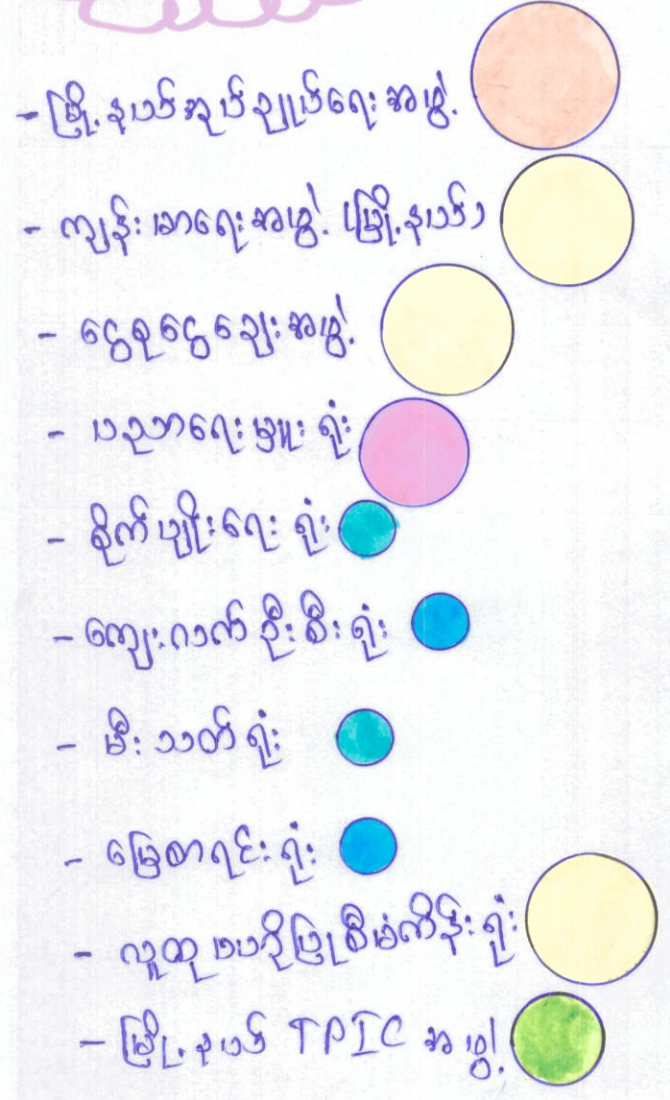 - မြို့နယ်အုပ်ချုပ်ရေးအဖွဲ့
- ကျန်းမာရေးအဖွဲ့ (မြို့နယ်)
- ငွေစုငွေချေးအဖွဲ့
- ပညာရေးမှူးရုံး
- စိုက်ပျိုးရေးရုံး
- ကျေးလက်ဦးစီးရုံး
- မီးသတ်ရုံး
- မြေစာရင်းရုံး
- လူထုပဟိုပြုစီမံကိန်းရုံး
- မြို့နယ် TPIC အဖွဲ့